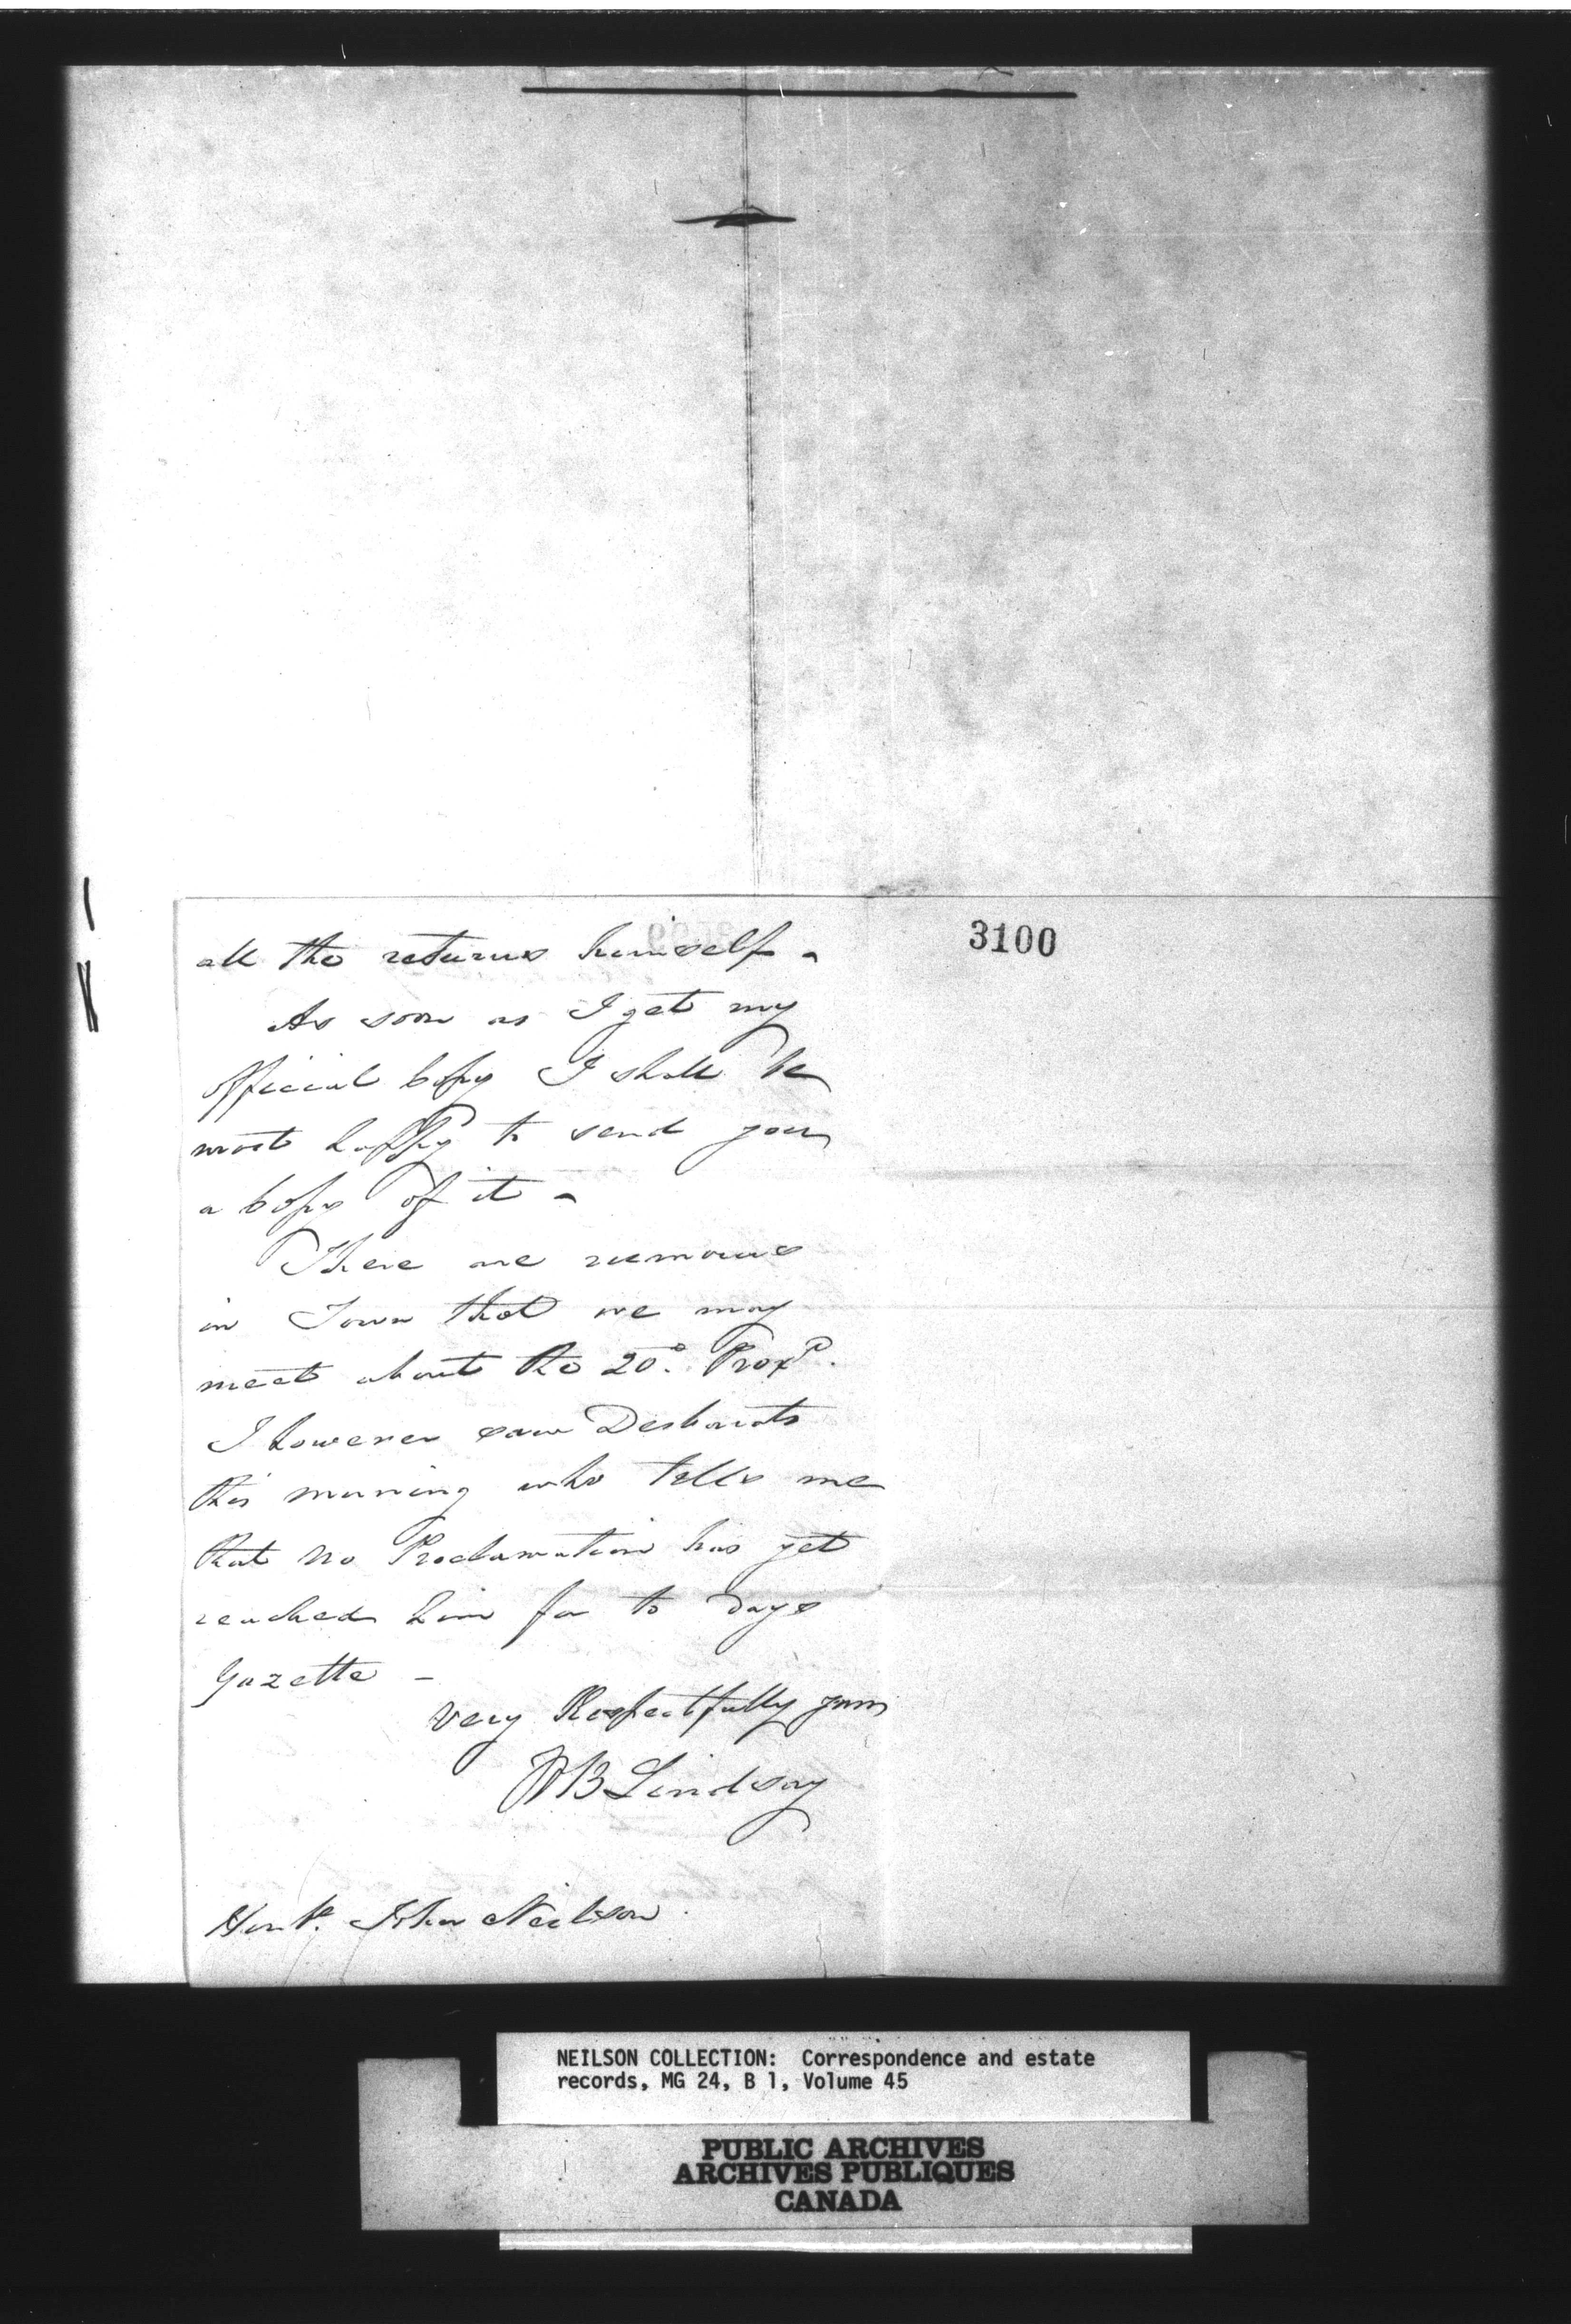 3100
all the returns himself -
As soon as I get my
official Copy I shall be
most happy to send you
a Copy of it -
There are rumours
in Town that we may
meet about the 20o. Proxo.
I however saw Desbarats
this morning who tells me
that no Proclamation has yet
reached him for to days
Gazette -
Very Respectfully yours
WB Lindsay
Honble. John Neilson.
NEILSON COLLECTION: Correspondence and estate
records, MG 24, B 1, Volume 45
PUBLIC ARCHIVES
ARCHIVES PUBLIQUES
CANADA